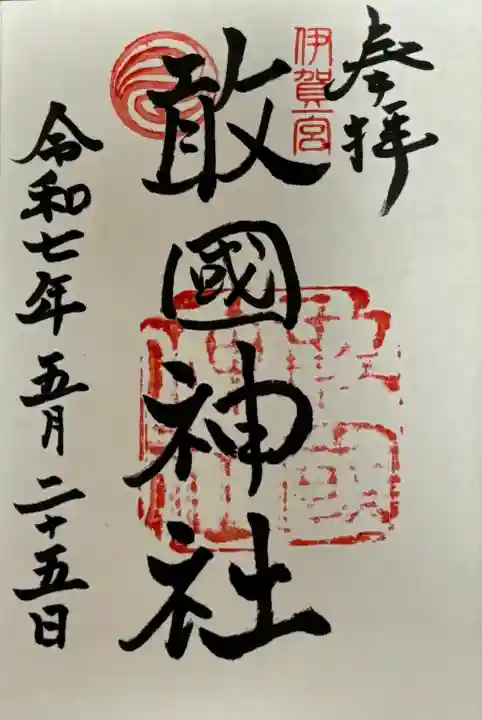 奉拝
伊賀一宮
敢國神社
令和七年五月二十五日